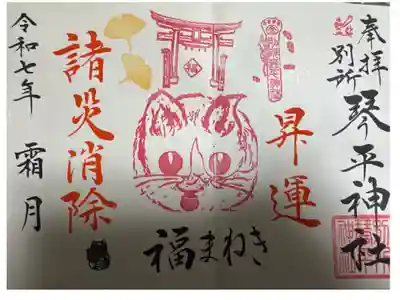 奉拝
別所
琴平神社
昇運
福
福まねき
諸災消除
令和七年
霜月